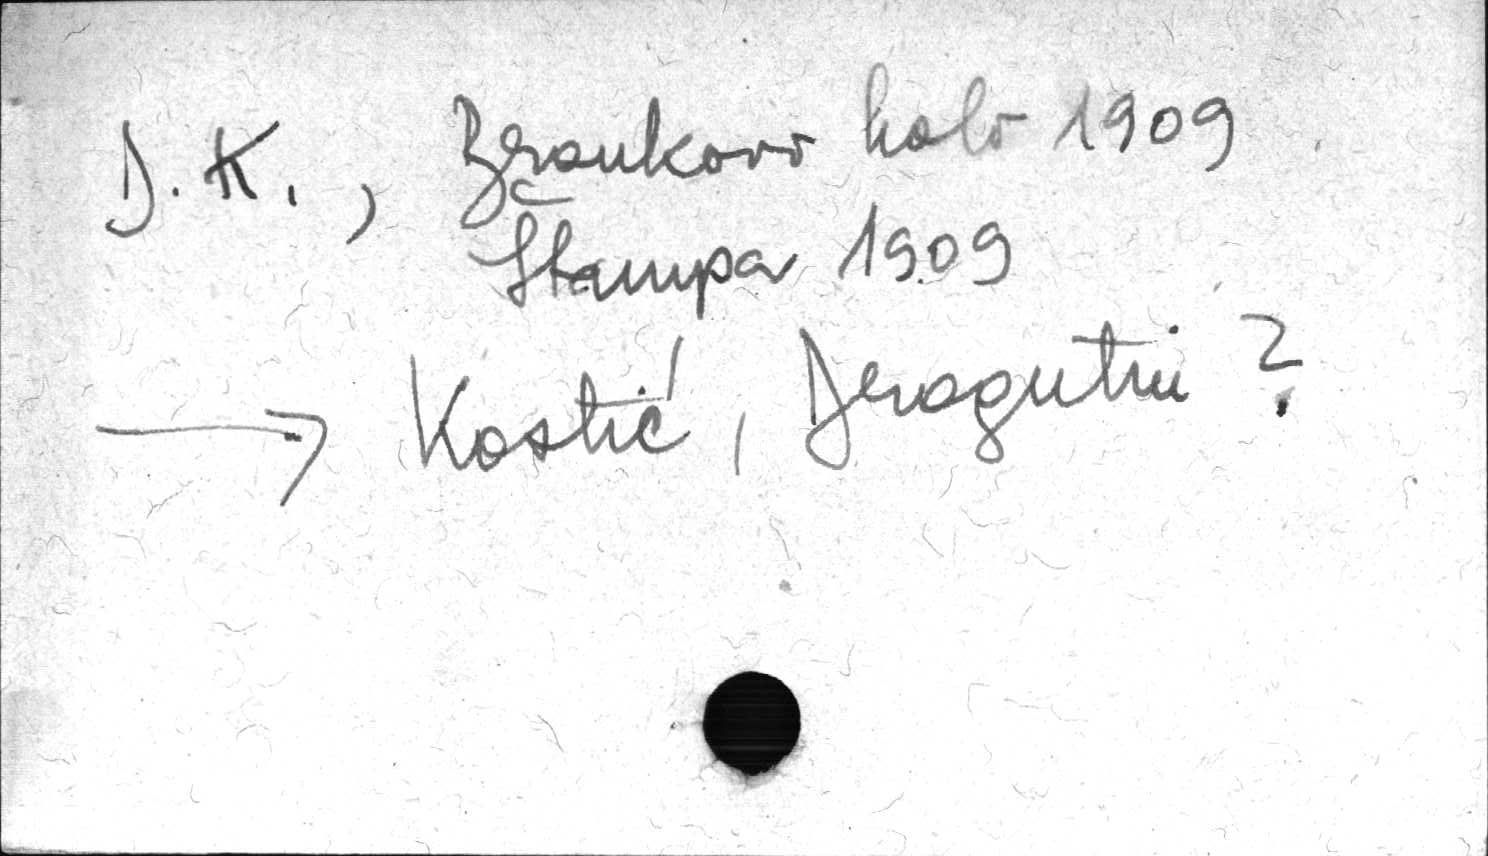 D. K., Brankovo kolo 1909
Štampa 1909
→ Kostić, Dragutin ?